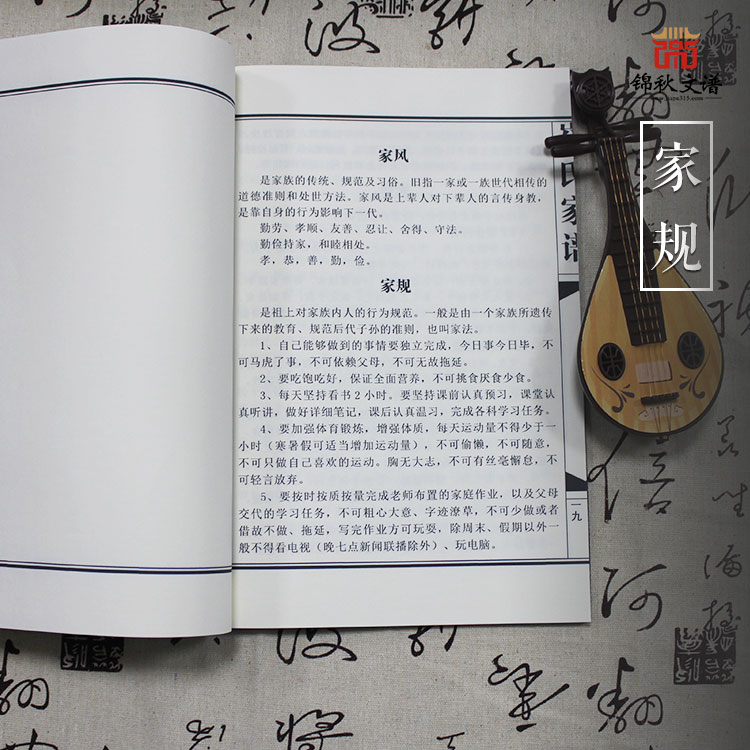 锦秋文谱
www.pupu315.com
家规
家风
是家族的传统、规范及习俗。旧指一家或一族世代相传的
道德准则和处世方法。家风是上辈人对下辈人的言传身教，
是靠自身的行为影响下一代。
勤劳、孝顺、友善、忍让、舍得、守法。
勤俭持家，和睦相处。
孝，恭，善，勤，俭。
家规
是祖上对家族内人的行为规范。一般是由一个家族所遗传
下来的教育、规范后代子孙的准则，也叫家法。
1、自己能够做到的事情要独立完成，今日事今日毕，不
可马虎了事，不可依赖父母，不可无故拖延。
2、要吃饱吃好，保证全面营养，不可挑食厌食少食。
3、每天坚持看书2小时。要坚持课前认真预习，课堂认
真听讲，做好详细笔记，课后认真温习，完成各科学习任务。
4、要加强体育锻炼，增强体质，每天运动量不得少于一
小时（寒暑假可适当增加运动量），不可偷懒，不可随意，
不可只做自己喜欢的运动。胸无大志，不可有丝毫懈怠，不
可轻言放弃。
5、要按时按质按量完成老师布置的家庭作业，以及父母
交代的学习任务，不可粗心大意、字迹潦草，不可少做或者
借故不做、拖延，写完作业方可玩耍，除周末、假期以外一
般不得看电视（晚七点新闻联播除外）、玩电脑。
氏家谱
一九